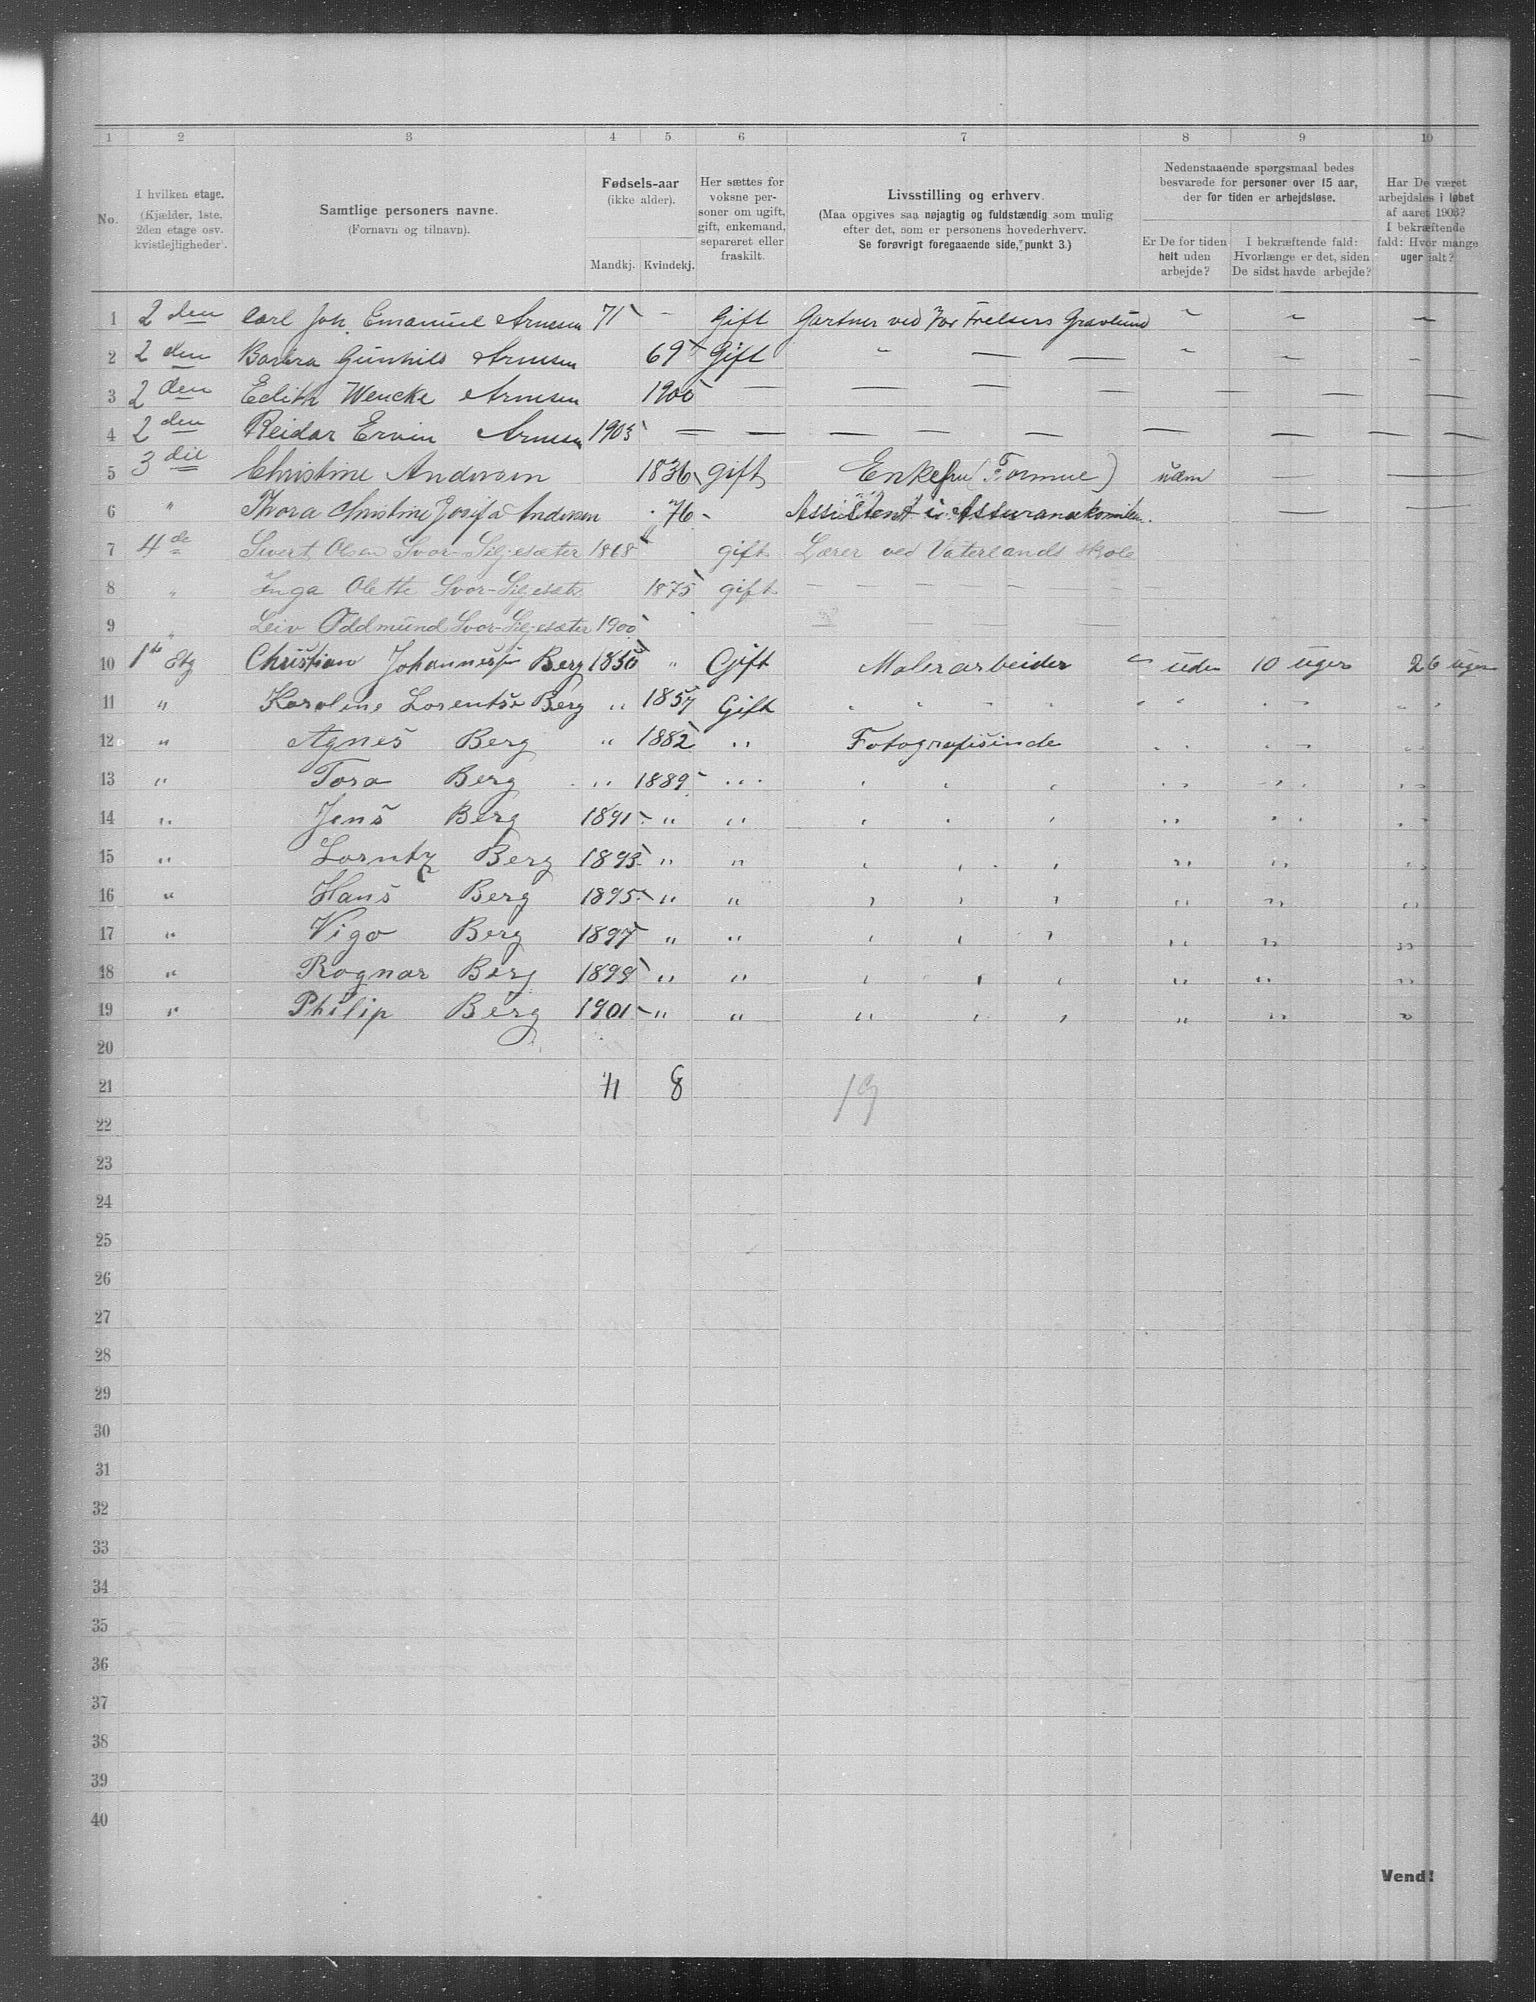 1 2 3 4 5 6 7 8 9 10
No.
I hvilken etage. (Kjælder, 1ste, 2den etage osv. kvistlejligheder).
Samtlige personers navne. (Fornavn og tilnavn).
Fødsels-aar (ikke alder). Mandkj. Kvindekj.
Her sættes for voksne personer om ugift, gift, enkemand, separeret eller fraskilt.
Livsstilling og erhverv. (Maa opgives saa nøjagtig og fuldstændig som mulig efter det, som er personens hovederhverv. Se forøvrigt foregaaende side, punkt 3.)
Nedenstaaende spørgsmaal bedes besvarede for personer over 15 aar, der for tiden er arbejdsløse.
Er De for tiden helt uden arbejde?
I bekræftende fald: Hvorlænge er det, siden De sidst havde arbejde?
Har De været arbejdsløs i løbet af aaret 1903? I bekræftende fald: Hvor mange uger ialt?
1 2den Carl Joh. Emanuel Arnesen 71 - Gift Gartner ved Vor Frelsers Gravlund " " "
2 2den Gunhild Arnesen 69 Gift " — — " " "
3 2den Edith Wencke Arnesen 1900 — — — — — — —
4 2den Reidar Ervin Arnesen 1903 — — — — — — — — — —
5 3die Christine Andersen 1836 gift Enkefru (Formue) — —
6 " Thora Christine Josefa Andersen 76 - Assistent i — —
7 4de Sivert Olsen Svor-Siljesæter 1868 gift Lærer ved Vaterlands skole
8 " Inga Olette Svor-Siljesæter 1875 gift — — — —
9 " Leiv Oddmund Svor-Siljesæter 1900 — — —
10 1ste Etg Christian Johannes Berg 1850 " Gift Malerarbeider " uden 10 uger 26 uger
11 " Karoline Berg " 1857 Gift " " " " " " " " "
12 " Agnes Berg " 1882 " Fotografisinde " " " " "
13 " Tora Berg " 1889 " " " " " " "
14 " Jens Berg 1891 " " " " " " " "
15 " Lorntz Berg 1893 " " " " " " " "
16 " Hans Berg 1895 " " " " " " " "
17 " Vigo Berg 1897 " " " " " " " "
18 " Ragnar Berg 1899 " " " " " " " "
19 " Philip Berg 1901 " " " " " " " "
20
21 11 8 19
22
23
24
25
26
27
28
29
30
31
32
33
34
35
36
37
38
39
40
Vend!